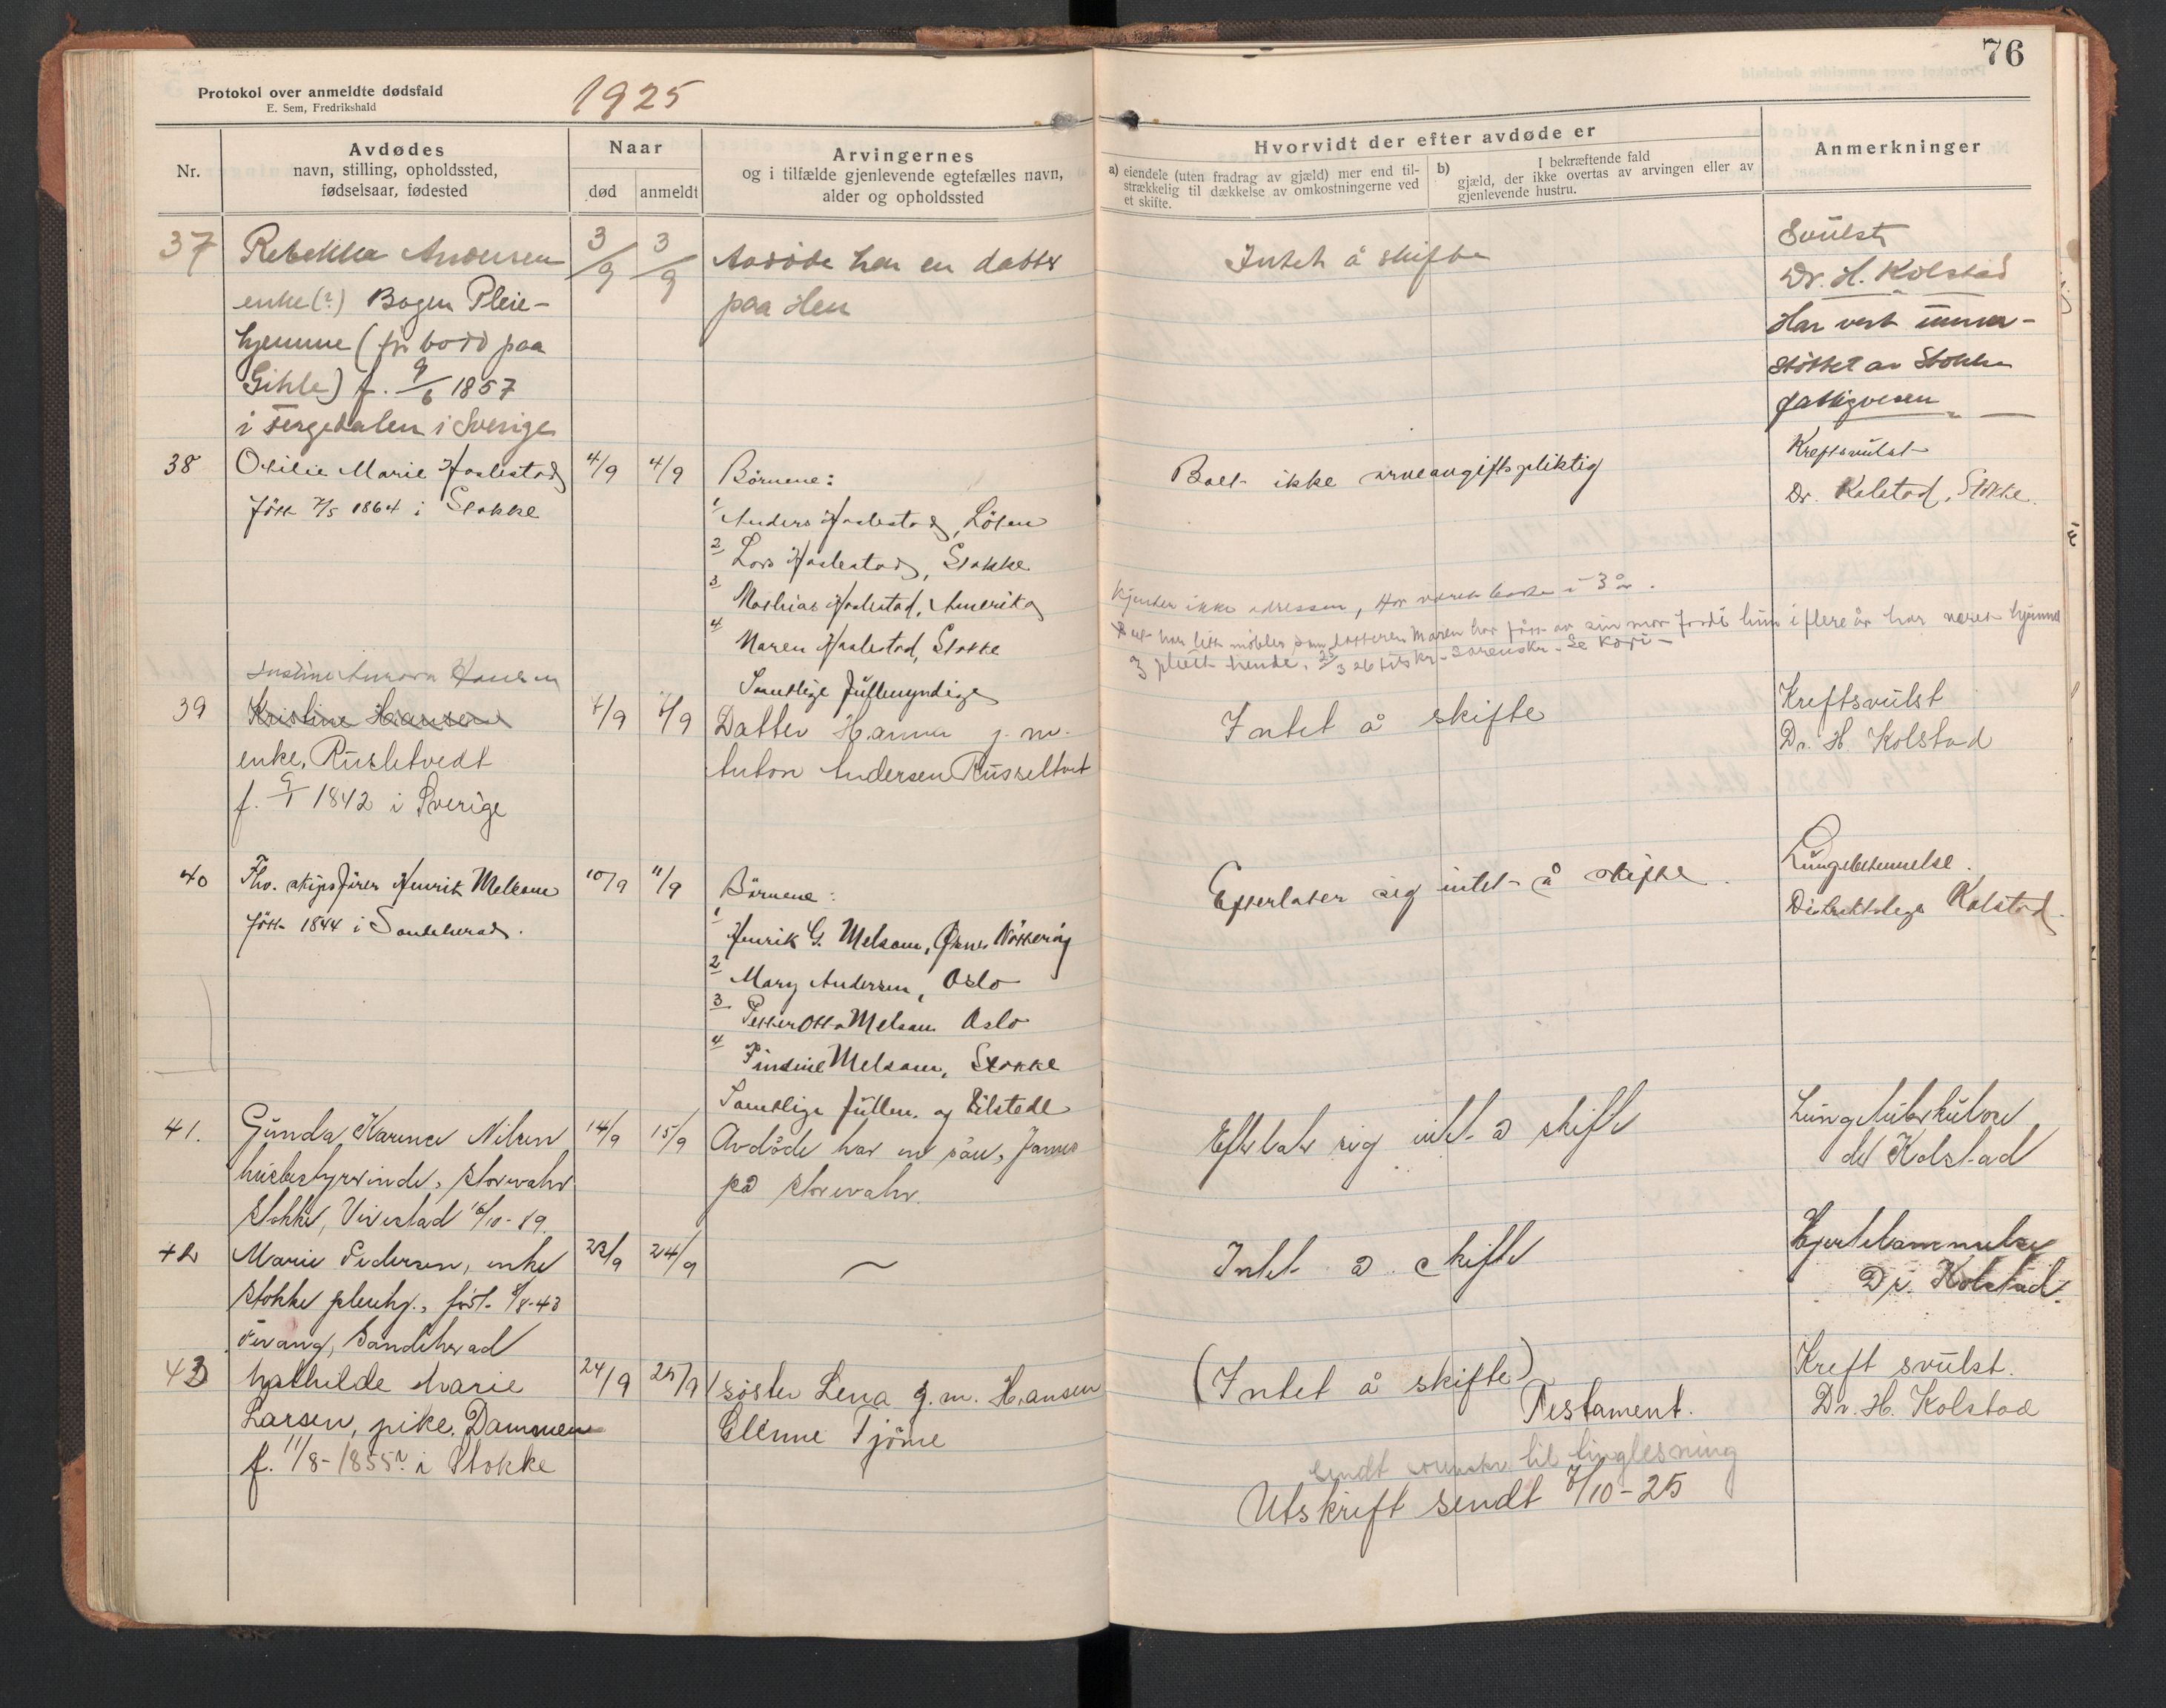 76
Protokol over anmeldte dødsfald
E. Sem, Fredrikshald
1925
Nr.
Avdødes
navn, stilling, opholdssted,
fødselsaar, fødested
Naar
død
anmeldt
Arvingernes
og i tilfælde gjenlevende egtefælles navn,
alder og opholdssted
Hvorvidt der efter avdøde er
a) eiendele (uten fradrag av gjæld) mer end til-
strækkelig til dækkelse av omkostningerne ved
et skifte.
b) I bekræftende fald
gjæld, der ikke overtas av arvingen eller av
gjenlevende hustru.
Anmerkninger
37
Rebekka Andersen
enke (?) Bogen Pleie-
hjemme (før bodd paa
Gihle) f. 9/6 1857
i Fergedalen i Sverige
3/9
3/9
Avdøde har en datter
paa Hen
Intet å skifte
Svülst
Dr. H. Kolstad
Har vert under-
støttet av Stokke
fattigvesen
38
Otilie Marie Haslestad
født 7/5 1864 i Stokke
4/9
4/9
Børnene:
1 Anders Haslestad, Løten
2 Lars Haslestad, Stokke
3 Mathias Haslestad, Amerika
4 Maren Haslestad, Stokke
Samtlige fullmyndige
Boet ikke arveavgiftspliktig
Kjender ikke adressen, Har været borte i 3 år.
Det har litt møbler som datteren Maren har fått av sin mor fordi hun i flere år har været hjemme
Kreftsvulst
Dr. Kolstad, Stokke.
39
Hansen
Kristine Hansen
enke, Rusletvedt
f. 9/1 1842 i Sverige
4/9
4/9
Datter Hanna g. m.
Anton Andersen Russeltvet
Intet å skifte
Kreftsvülst
Dr. H Kolstad
40
Fhv. skipsfører Henrik Melsom
født 1844 i Sandeherad.
10/9
11/9
Børnene:
1 Henrik G. Melsom, Nøtterøy
2 Mary Andersen, Oslo
3 Petter Otto Melsom Oslo
4 Melsom, Stokke
Samtlige fullm. og tilstede
Efterlater sig intet å skifte.
Lungebetennelse.
Distriktslege Kolstad.
41.
Gunda Karence Nilsen
husbestyrerinde, Storevahr
Stokke, Vivestad 16/10-89.
14/9
15/9
Avdøde har en søn, James
på Storevahr.
Efterlater sig intet å skifte
Lungetüberkülose
dr Kolstad
42
Marie Pedersen, enke
Stokke pleiehj., født 8/8-43
Fevang, Sandeherad
23/9
24/9
~
Intet å skifte
Hjertelammelse
Dr. Kolstad.
43
Mathilde Marie
Larsen, pike, Dammen
f. 11/8-1855? i Stokke
24/9
25/9
1 søster Lena g. m. Hansen
Glenne Tjøme
(Intet å skifte)
Testament.
sendt sorenskr til tinglesning
Utskrift sendt 7/10-25
Kreft svülst.
Dr. H. Kolstad